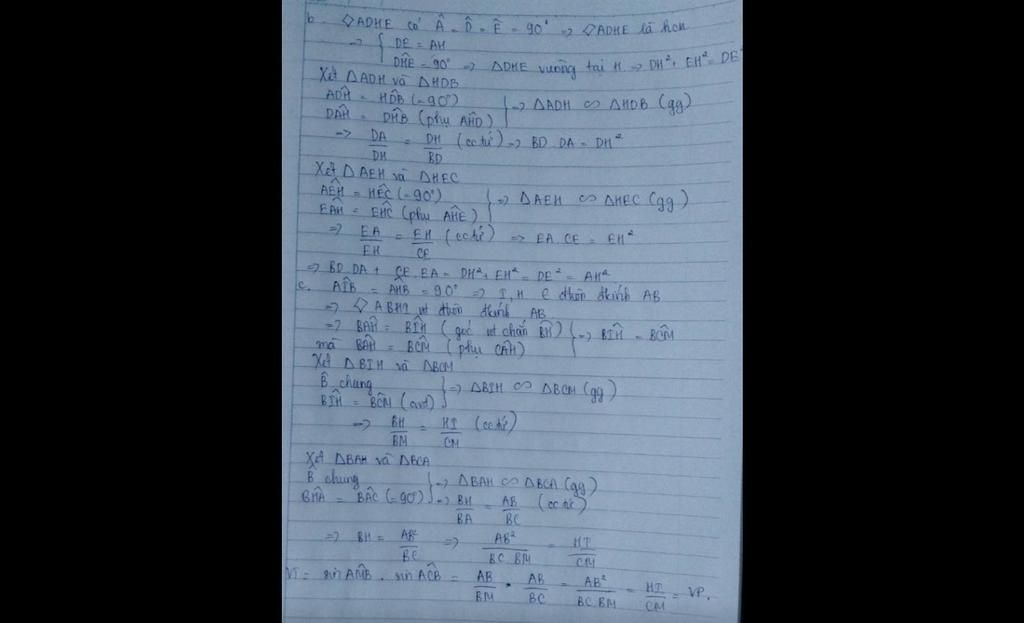 b. ◇ADHE có Â = D̂ = Ê = 90° => ◇ADHE là hcn
=> { DE = AH
DĤE = 90° => ΔDHE vuông tại H => DH² + EH² = DE²
Xét ΔADH và ΔHDB
AD̂H = HD̂B (=90°)
DÂH = DĤB (phụ AĤD) } => ΔADH ∽ ΔHDB (gg)
=> DA/DH = DH/BD (cctứ) => BD.DA = DH²
Xét ΔAEH và ΔHEC
AÊH = HÊC (=90°)
EÂH = EĤC (phụ AĤE) } => ΔAEH ∽ ΔHEC (gg)
=> EA/EH = EH/CE (cctứ) => EA.CE = EH²
=> BD.DA + CE.EA = DH² + EH² = DE² = AH²
c. AÎB = AĤB = 90° => I, H ∈ đtròn đkính AB
=> ◇ABHI nt đtròn đkính AB
=> BÂH = BÎH (góc nt chắn BH)
mà BÂH = BĈM (phụ CÂH) } => BÎH = BĈM
Xét ΔBIH và ΔBCM
B̂ chung
BÎH = BĈM (cmt) } => ΔBIH ∽ ΔBCM (gg)
=> BH/BM = HI/CM (cctứ)
Xét ΔBAH và ΔBCA
B̂ chung
BĤA = BÂC (=90°) } => ΔBAH ∽ ΔBCA (gg)
=> BH/BA = AB/BC (cctứ)
=> BH = AB²/BC => AB²/BC.BM = HI/CM
VT = sin AM̂B . sin AĈB = AB/BM . AB/BC = AB²/BC.BM = HI/CM = VP.